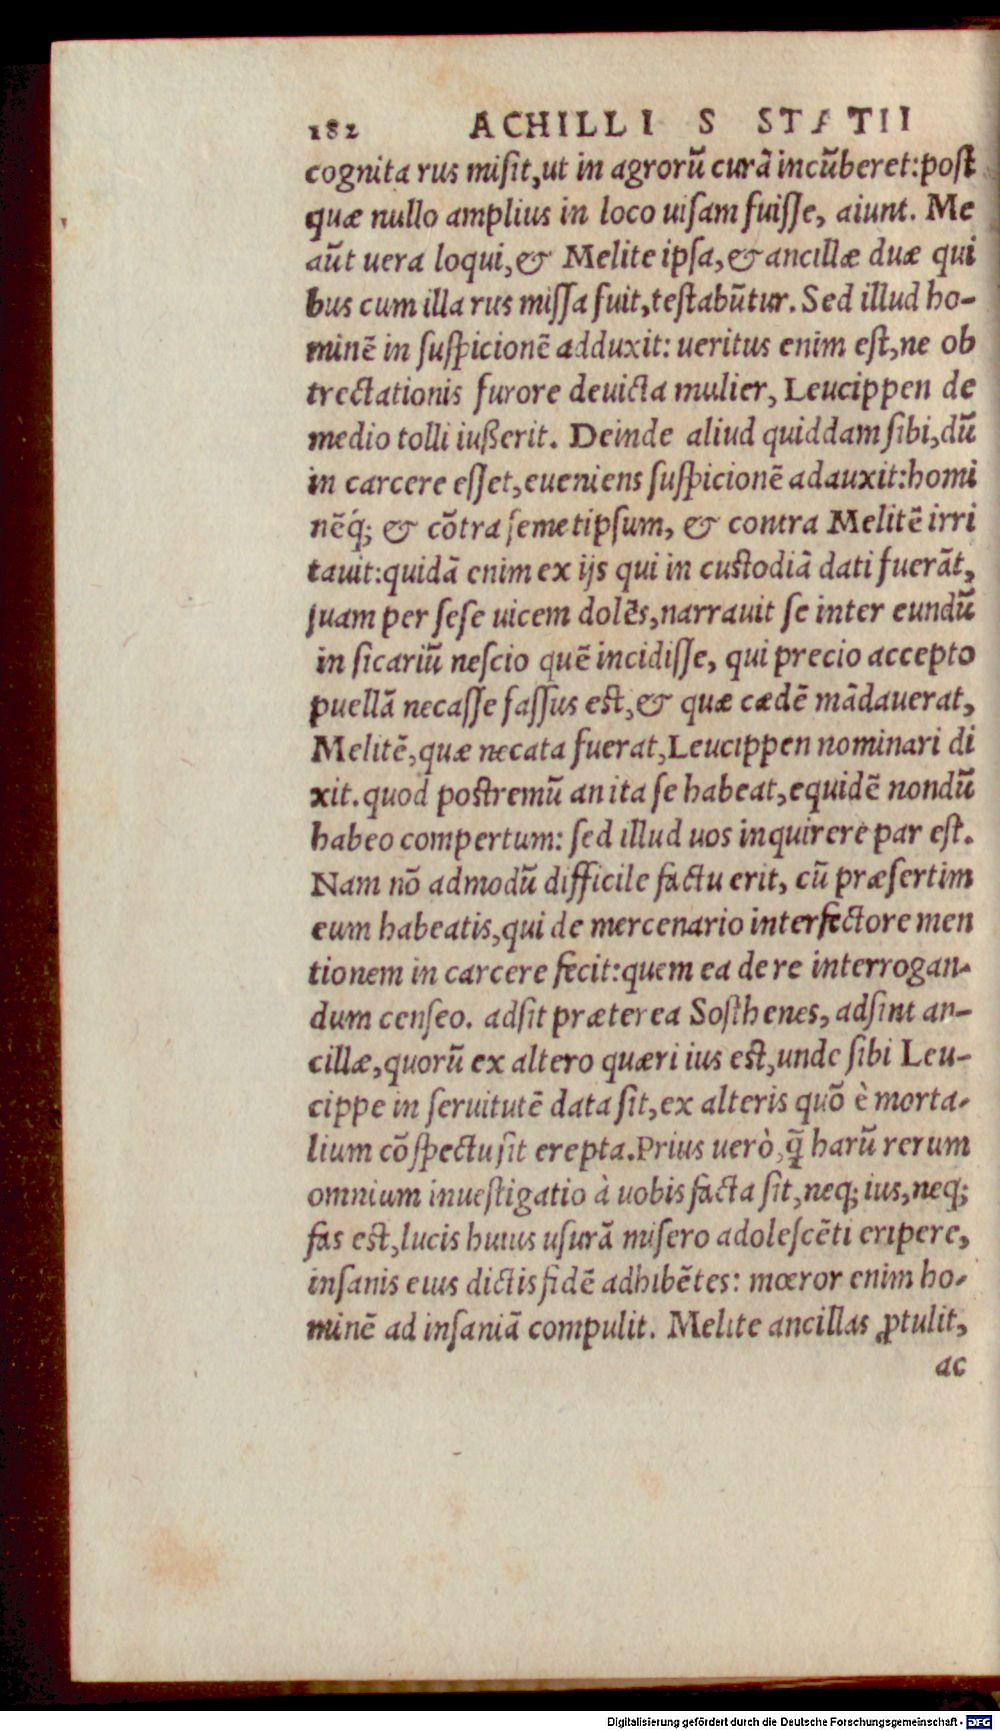 182 ACHILLI S STATII
cognita rus misit, ut in agrorũ curã incũberet: post
quæ nullo amplius in loco uisam fuisse, aiunt. Me
aũt uera loqui, & Melite ipsa, & ancillæ duæ qui
bus cum illa rus missa fuit, testabũtur. Sed illud ho-
minẽ in suspicionẽ adduxit: ueritus enim est, ne ob
trectationis furore deuicta mulier, Leucippen de
medio tolli iußerit. Deinde aliud quiddam sibi, dũ
in carcere esset, eueniens suspicionẽ adauxit: homi
nẽq́; & cõtra semetipsum, & contra Melitẽ irri
tauit: quidã enim ex ijs qui in custodiã dati fuerãt,
suam per sese uicem dolẽs, narrauit se inter eundũ
in sicariũ nescio quẽ incidisse, qui precio accepto
puellã necasse fassus est, & quæ cædẽ mãdauerat,
Melitẽ, quæ necata fuerat, Leucippen nominari di
xit. quod postremũ an ita se habeat, equidẽ nondũ
habeo compertum: sed illud uos inquirere par est.
Nam nõ admodũ difficile factu erit, cũ præsertim
eum habeatis, qui de mercenario interfectore men
tionem in carcere fecit: quem ea de re interrogan-
dum censeo. adsit præterea Sosthenes, adsint an-
cillæ, quorũ ex altero quæri ius est, unde sibi Leu-
cippe in seruitutẽ data sit, ex alteris quõ è morta-
lium cõspectu sit erepta. Prius uerò, q̃ harũ rerum
omnium inuestigatio à uobis facta sit, neq; ius, neq;
fas est, lucis huius usurã misero adolescẽti eripere,
insanis eius dictis fidẽ adhibẽtes: mœror enim ho-
minẽ ad insaniã compulit. Melite ancillas ꝓtulit,
ac
Digitalisierung gefördert durch die Deutsche Forschungsgemeinschaft - DFG